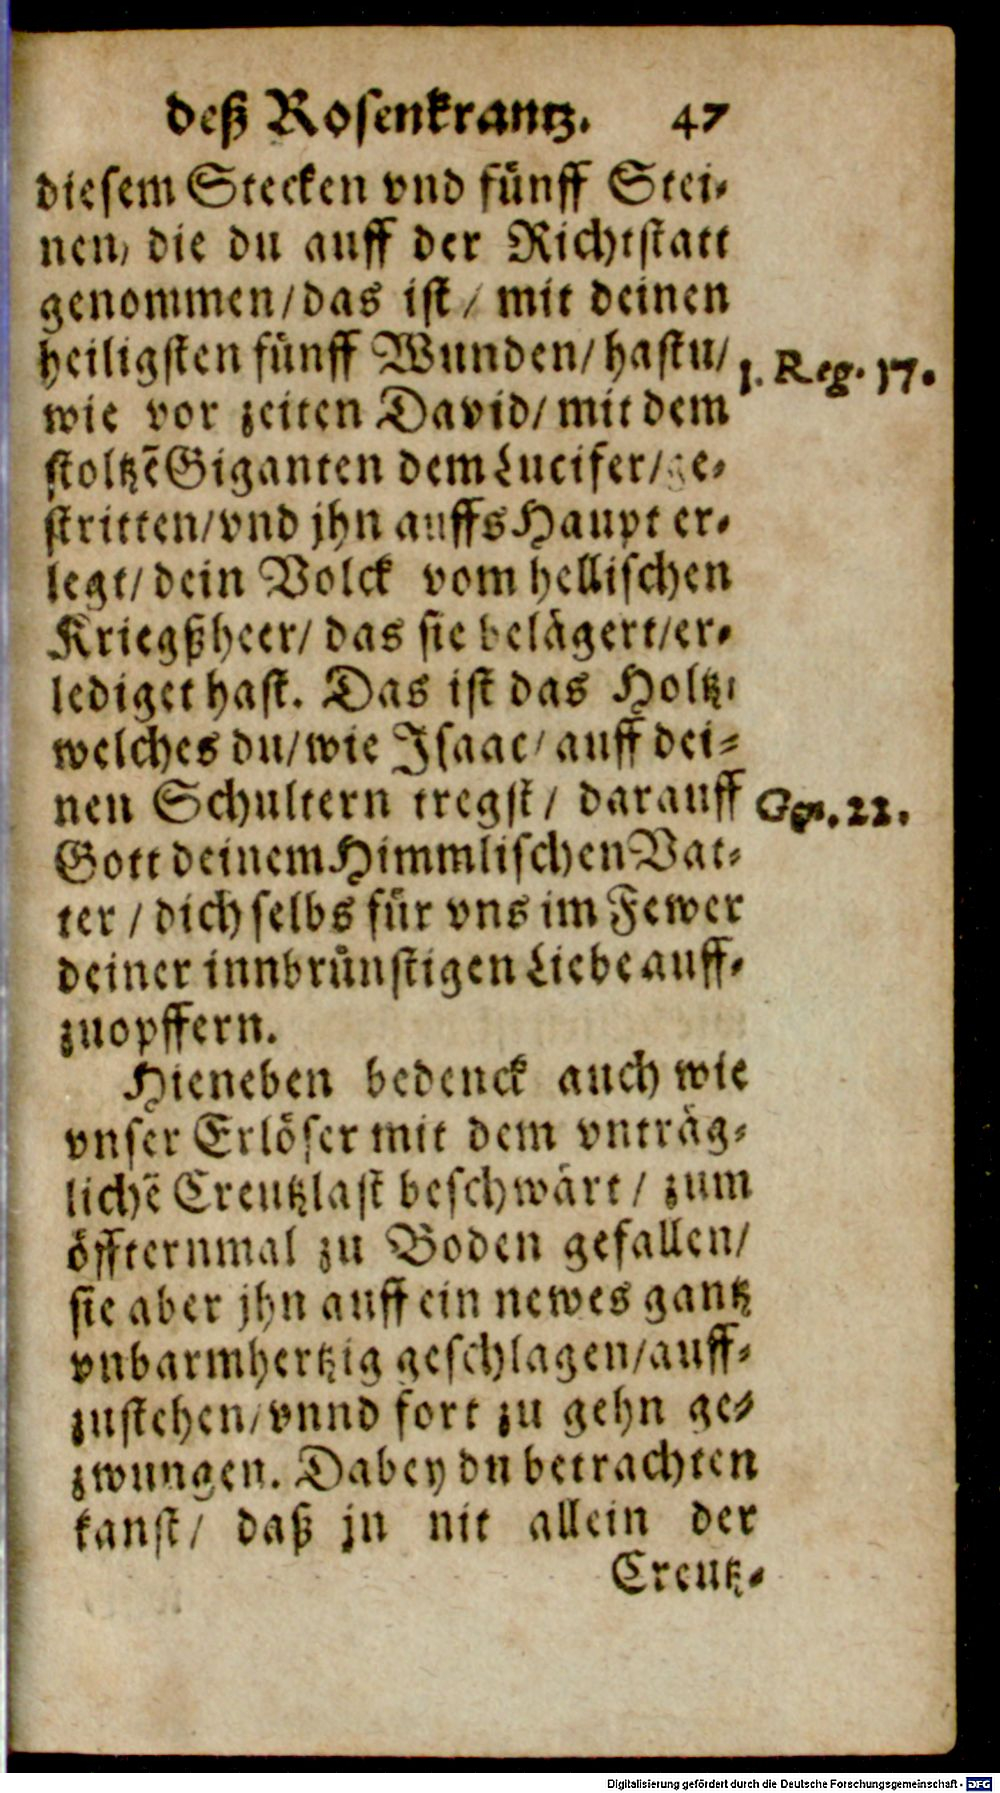 deß Rosenkrantz. 47
diesem Stecken vnd fünff Stei-
nen, die du auff der Richtstatt
genommen/das ist/ mit deinen
heiligsten fünff Wunden/hastu/
1. Reg. 17.
wie vor zeiten David/mit dem
stoltzē Giganten dem Lucifer/ge-
stritten/vnd jhn auffs Haupt er-
legt/dein Volck vom hellischen
Kriegßheer/ das sie belägert/er-
lediget hast. Das ist das Holtz,
welches du/wie Isaac/auff dei-
nen Schultern tregst/ darauff
Gen. 22.
Gott deinem Himmlischen Vat-
ter / dich selbs für vns im Fewer
deiner innbrünstigen Liebe auff-
zuopffern.
Hieneben bedenck auch wie
vnser Erlöser mit dem vnträg-
lichē Creutzlast beschwärt/ zum
öffternmal zu Boden gefallen/
sie aber jhn auff ein newes gantz
vnbarmhertzig geschlagen/auff-
zustehen/vnnd fort zu gehn ge-
zwungen. Dabey du betrachten
kanst/ daß jn nit allein der
Creutz-
Digitalisierung gefördert durch die Deutsche Forschungsgemeinschaft - DFG